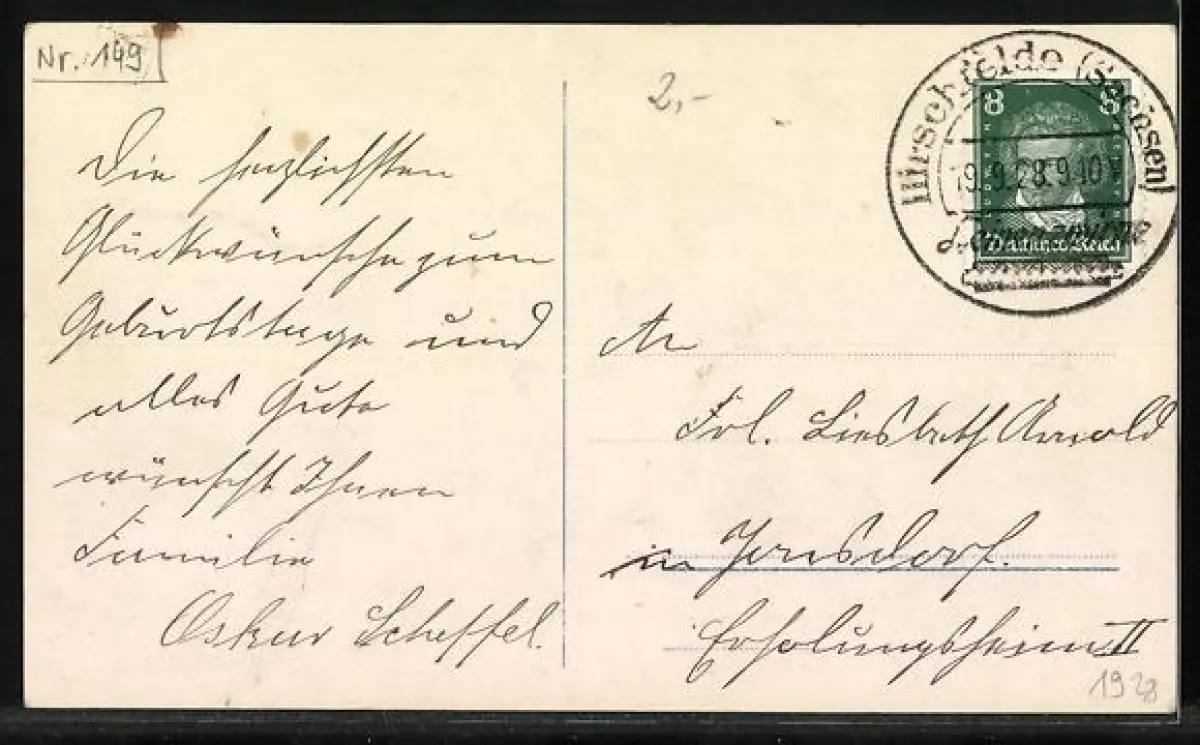 Nr. 149
2,-
Hirschfelde (Sachsen)
19.9.28. 9-10 V
8 8
Deutsches Reich
Die herzlichsten
Glückwünsche zum
Geburtstage und
alles Gute
wünscht Ihnen
Familie
Oskar Scheffel.
An
Frl. Liesbeth Arnold
in Jonsdorf.
Erholungsheim II
1928